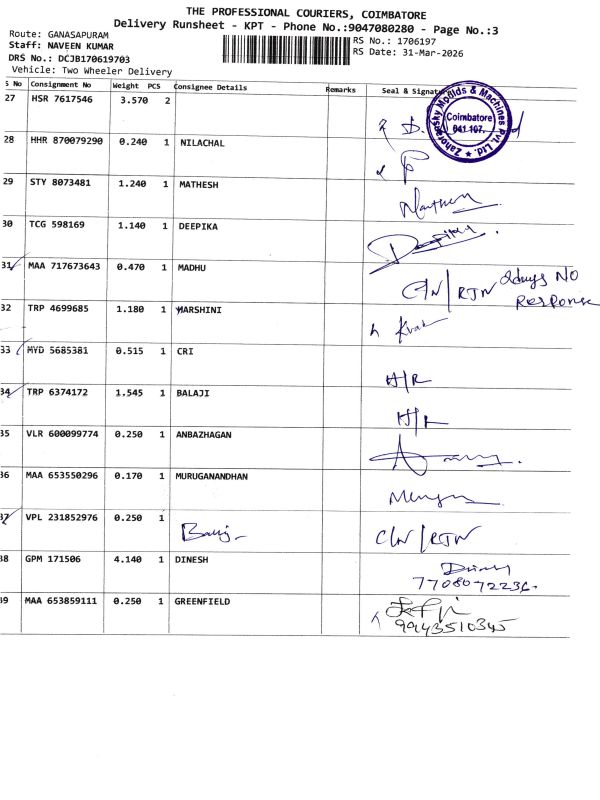 THE PROFESSIONAL COURIERS, COIMBATORE
Delivery Runsheet - KPT - Phone No.:9047080280 - Page No.:3
Route: GANASAPURAM
Staff: NAVEEN KUMAR
RS No.: 1706197
DRS No.: DCJB170619703
RS Date: 31-Mar-2026
Vehicle: Two Wheeler Delivery
S No Consignment No Weight PCS Consignee Details Remarks Seal & Signature
27 HSR 7617546 3.570 2
Zahoransky Moulds & Machines Pvt. Ltd. Coimbatore 641 107.
28 HHR 870079290 0.240 1 NILACHAL
29 STY 8073481 1.240 1 MATHESH Mathesh
30 TCG 598169 1.140 1 DEEPIKA Deepika
31 MAA 717673643 0.470 1 MADHU C/N/RTN 2days NO Response
32 TRP 4699685 1.180 1 VARSHINI
33 MYD 5685381 0.515 1 CRI H/R
34 TRP 6374172 1.545 1 BALAJI H/R
35 VLR 600099774 0.250 1 ANBAZHAGAN
36 MAA 653550296 0.170 1 MURUGANANDHAN
37 VPL 231852976 0.250 1 C/N/RTN
38 GPM 171506 4.140 1 DINESH
7708072236.
39 MAA 653859111 0.250 1 GREENFIELD
9943510345